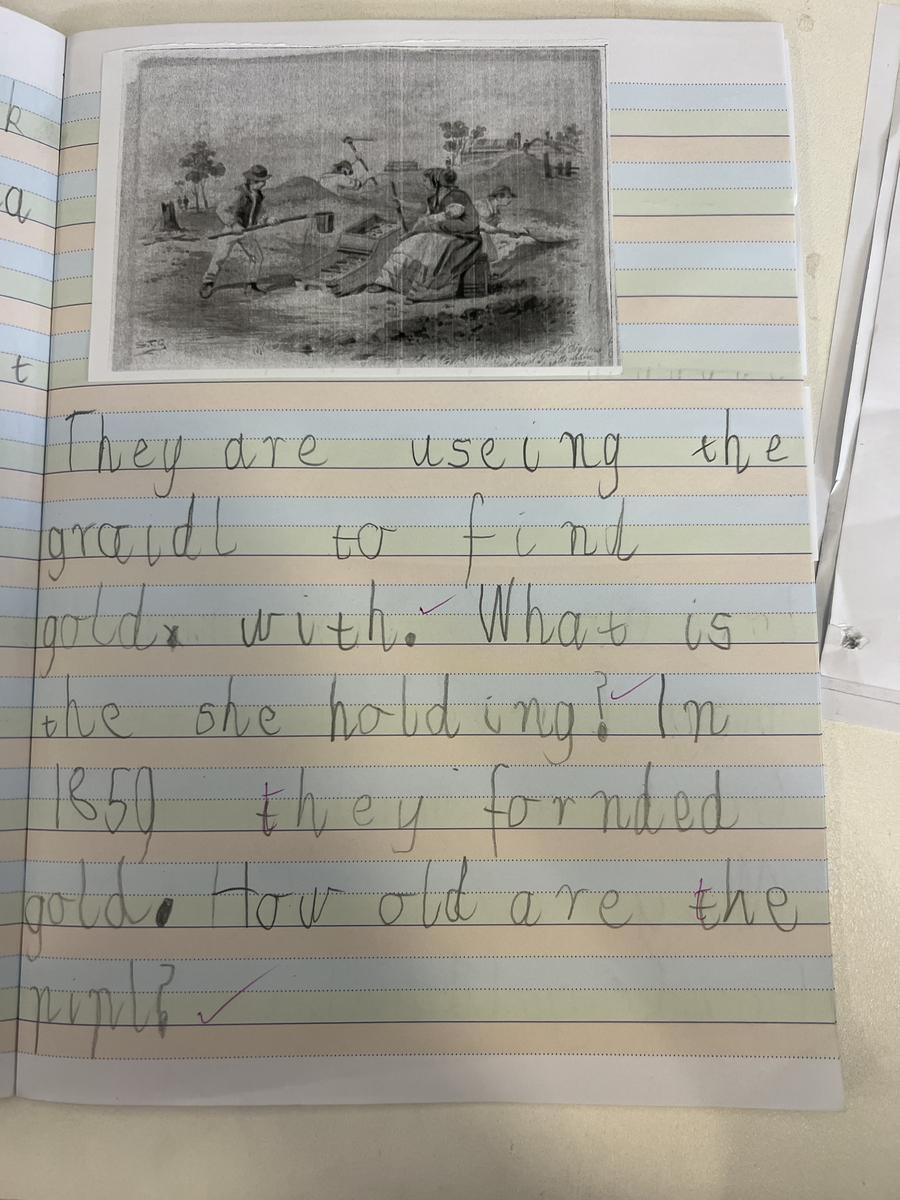 k
a
t
S.T.G.
They are useing the
graidl to find
gold. with. What is
the she holding? In
1850 they fornded
gold. How old are the
pipl?